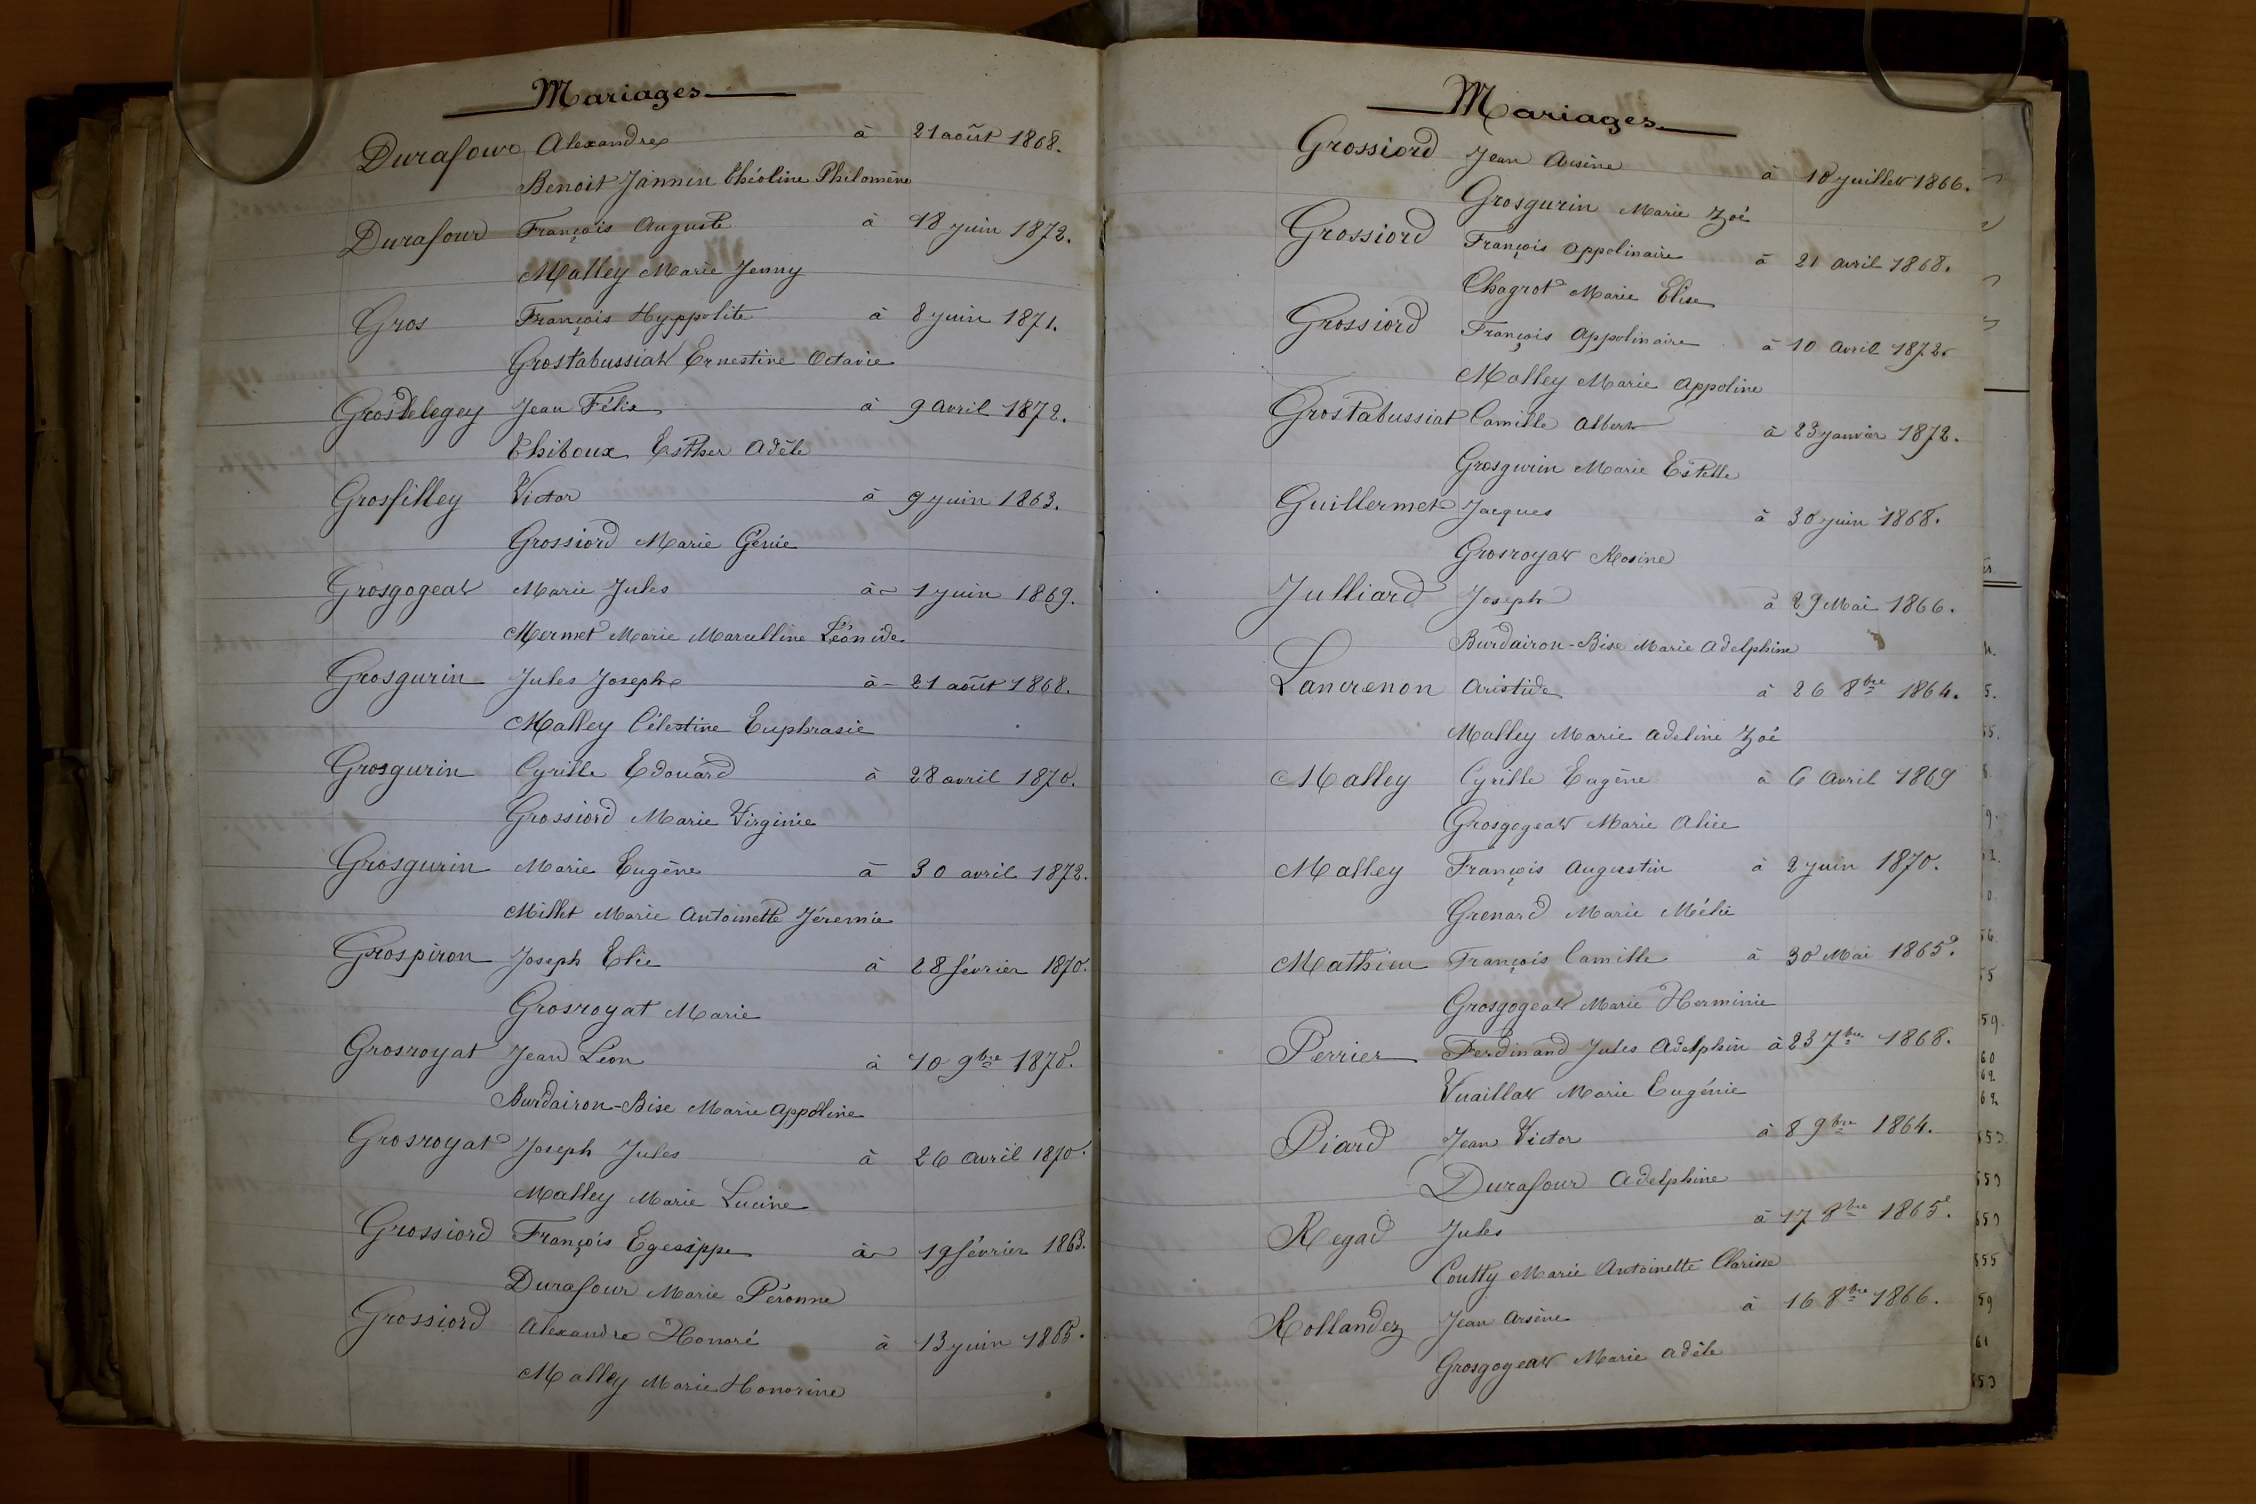 Mariages
Durafour Alexandre à 21 août 1868.
Benoit Jannin Théoline Philomène
Durafour François Auguste à 18 juin 1872.
Malley Marie Jenny
Gros François Hyppolite à 8 juin 1871.
Grostabussiat Ernestine Octavie
Grosdelegey Jean Félix à 9 avril 1872.
Thiboux Esther Adèle
Grosfilley Victor à 9 juin 1863.
Grossiord Marie Génie
Grosgogeat Marie Jules à 1 juin 1869.
Mermet Marie Marcelline Léonide
Grosgurin Jules Joseph à 21 août 1868.
Malley Célestine Euphrasie
Grosgurin Cyrille Edouard à 28 avril 1870.
Grossiord Marie Virginie
Grosgurin Marie Eugène à 30 avril 1872.
Millet Marie Antoinette Jéremie
Grospiron Joseph Elie à 28 février 1870.
Grosroyat Marie
Grosroyat Jean Léon à 10 9bre 1870.
Burdairon-Bise Marie Appoline
Grosroyat Joseph Jules à 26 avril 1870.
Malley Marie Lucine
Grossiord François Egesippe à 19 février 1863.
Durafour Marie Péronne
Grossiord Alexandre Honoré à 13 juin 1865.
Malley Marie Honorine
Mariages
Grossiord Jean Arsène à 18 juillet 1866.
Grosgurin Marie Zoé
Grossiord François Appolinaire à 21 avril 1868.
Chagrot Marie Elise
Grossiord François Appolinaire à 10 avril 1872.
Malley Marie Appoline
Grostabussiat Camille Albert à 23 janvier 1872.
Grosgurin Marie Estelle
Guillermet Jacques à 30 juin 1868.
Grosroyat Rosine
Julliard Joseph à 29 Mai 1866.
Burdairon-Bise Marie Adelphine
Lancrenon Aristide à 26 8bre 1864.
Malley Marie Adeline Zoé
Malley Cyrille Eugène à 6 Avril 1869
Grosgogeat Marie Alice
Malley François Augustin à 2 juin 1870.
Grenard Marie Mélie
Mathieu François Camille à 30 Mai 1865.
Grosgogeat Marie Herminie
Perrier Ferdinand Jules Adelphin à 23 7bre 1868.
Vuaillat Marie Eugénie
Piard Jean Victor à 8 9bre 1864.
Durafour Adelphine
Regad Jules à 17 8bre 1865.
Coutty Marie Antoinette Clarisse
Rollandez Jean Arsène à 16 8bre 1866.
Grosgogeat Marie Adèle